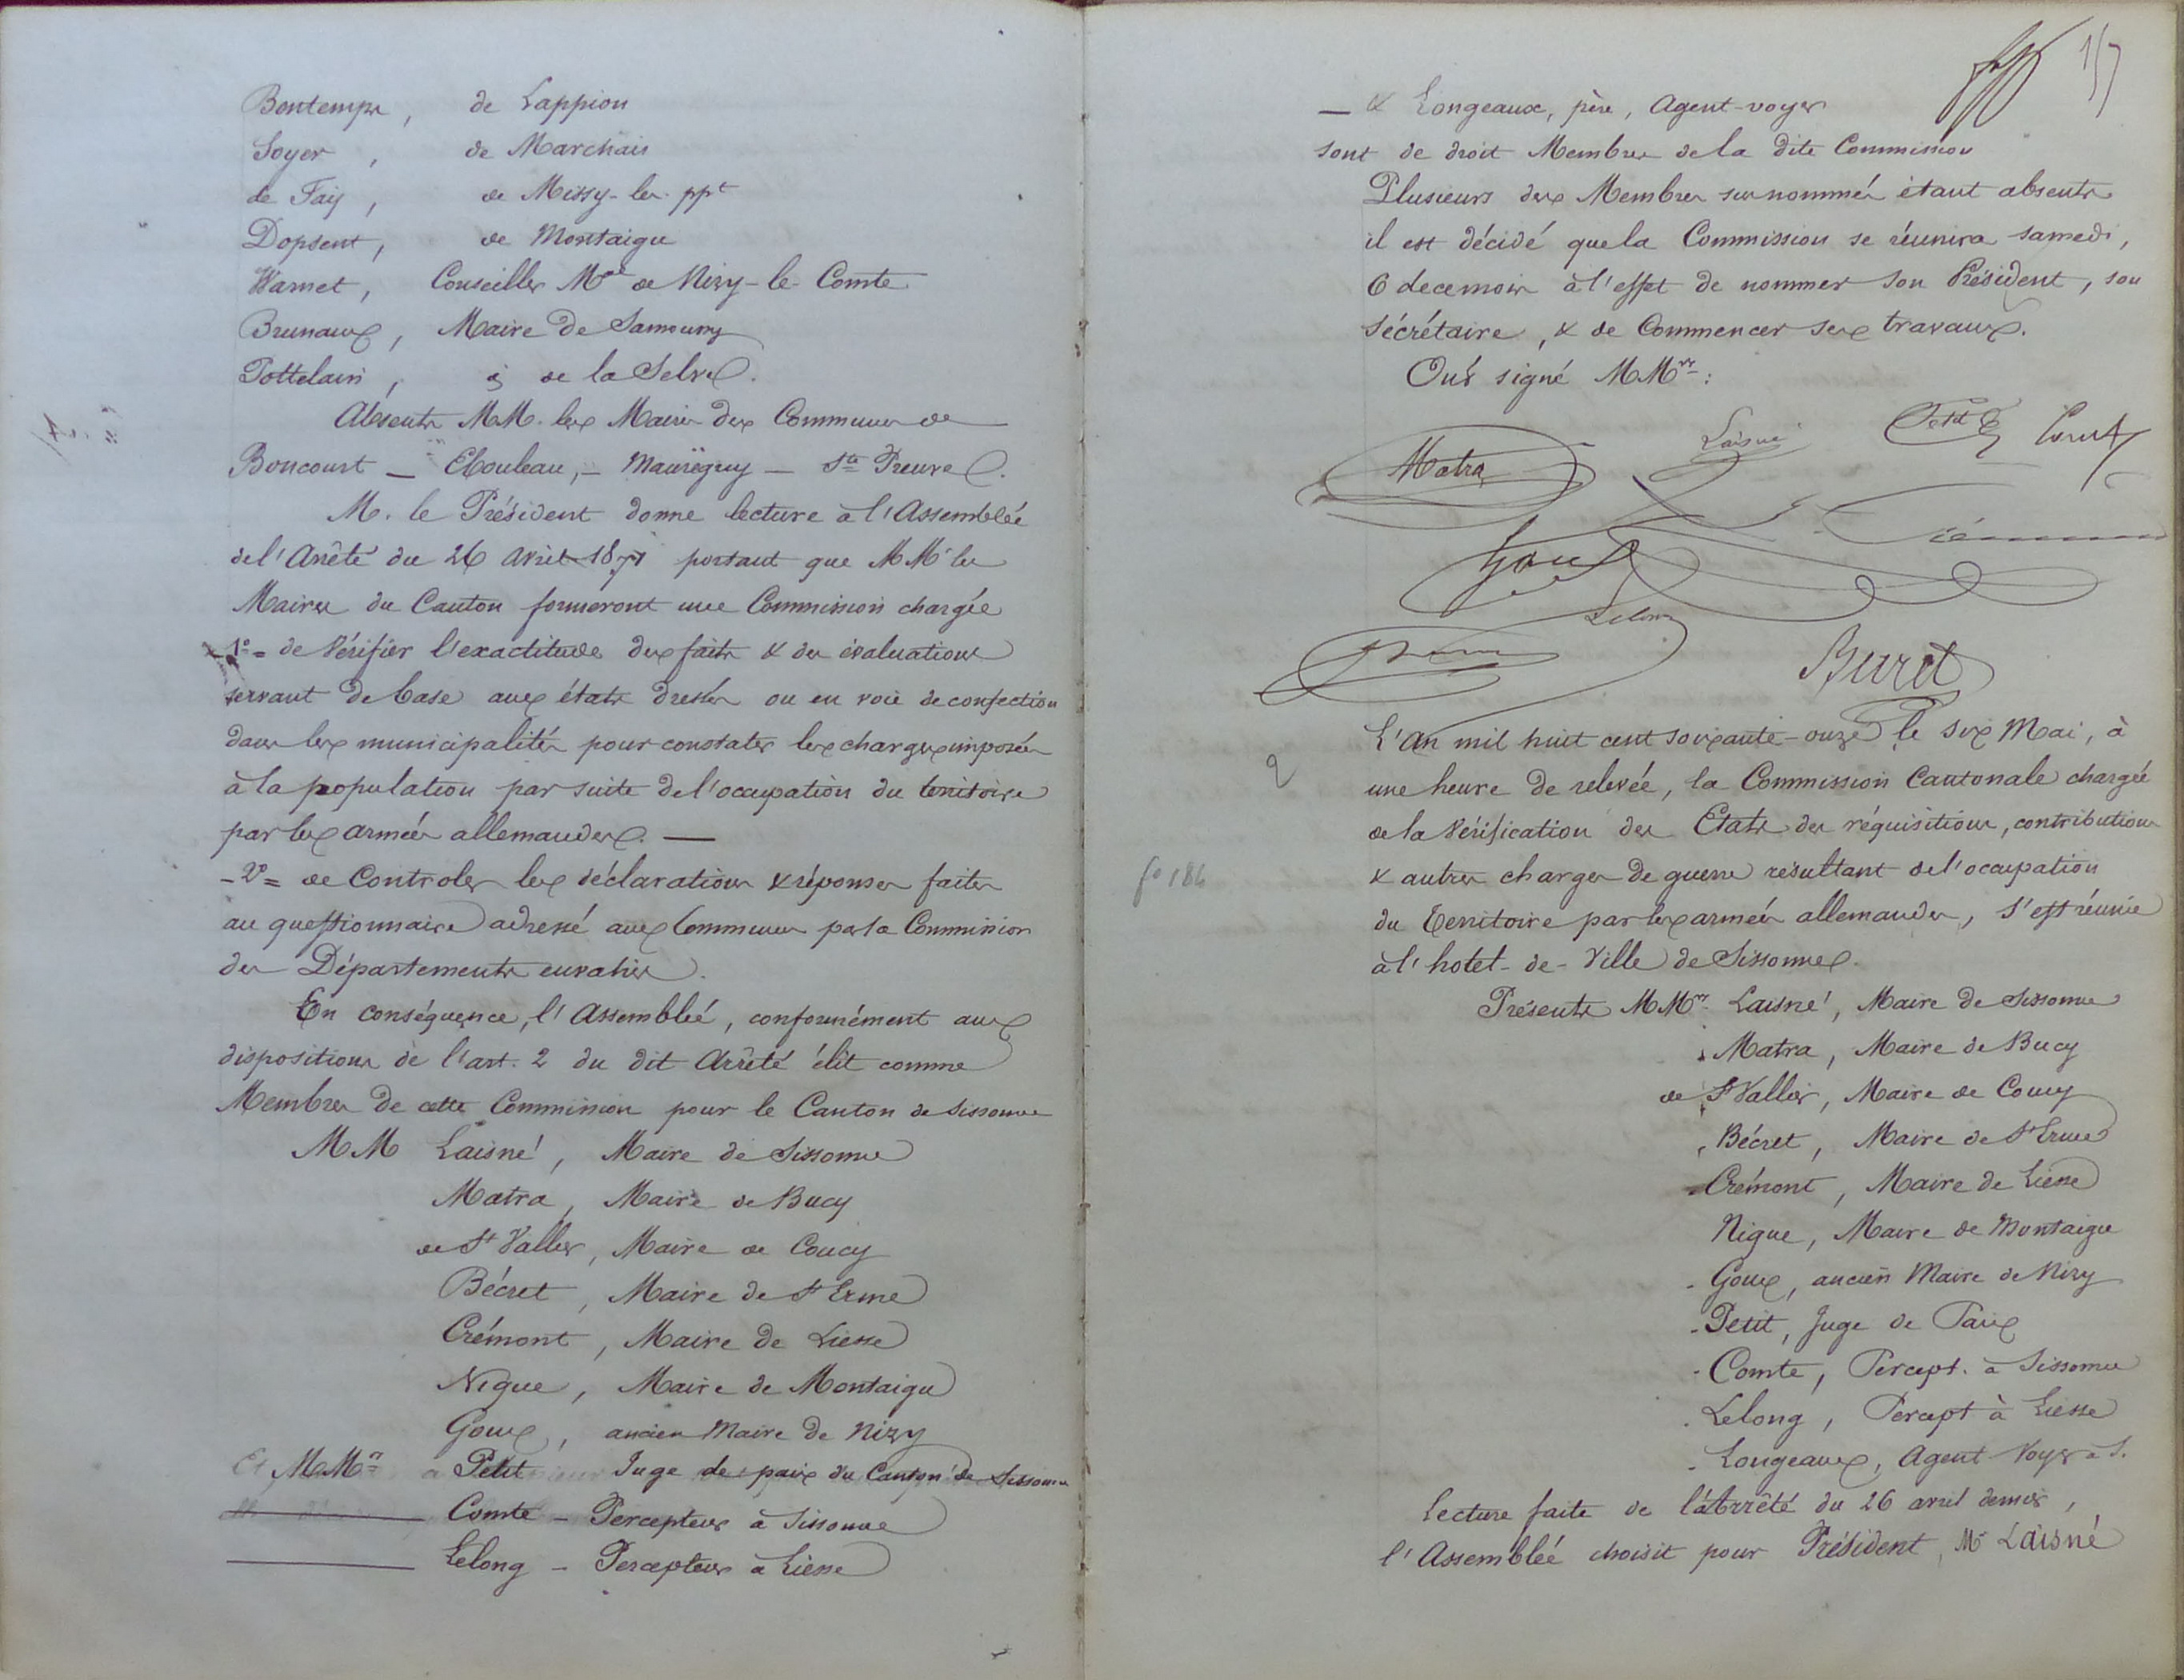 Bontemps, de Lappion
Soyer, de Marchais
de Faÿ, de Missy-les-ppt
Dopsent, de Montaigu
Warnet, Conseiller Mal de Nizy-le-Comte
Brunaux, Maire de Samoussy
Pottelain, d de la Selve.
Absents MM. les Maires des Communes de
Boncourt — Ebouleau, — Mauregny — Ste Preuve.
M. le Président donne lecture à l'Assemblée
de l'Arrêté du 26 Avril 1871 portant que MM les
Maires du Canton formeront une Commission chargée
1° = de Vérifier l'exactitude des faits & des évaluations
servant de base aux états dressés ou en voie de confection
dans les municipalités pour constater les charges imposées
à la population par suite de l'occupation du territoire
par les armées allemandes. —
- 2° = de Controler les déclarations & réponses faites
au questionnaire adressé aux Communes par la Commission
des Départements envahis.
En conséquence, l'Assemblée, conformément aux
dispositions de l'art. 2 du dit Arrêté élit comme
Membres de cette Commission pour le Canton de Sissonne
MM Laisné, Maire de Sissonne
Matra, Maire de Bucy
de St Vallier, Maire de Coucy
Bécret, Maire de St Erme
Crémont, Maire de Liesse
Nigue, Maire de Montaigu
Goux, ancien Maire de Nizy
Et MMrs Petit Juge de paix du Canton de Sissonne
Comte — Percepteur à Sissonne
Lelong — Percepteur à Liesse
157
— & Longeaux, père, Agent-voyer
sont de droit Membres de la dite Commission
Plusieurs des Membres sus nommés étant absents
il est décidé que la Commission se réunira samedi,
6 de ce mois à l'effet de nommer son Président, son
sécrétaire, & de Commencer ses travaux.
Ont signé MMrs :
Laisné Petit Comte
Matra
Crémont
Goux
Lelong
Buret
2
L'An mil huit cent soixante-onze le six Mai, à
une heure de relevée, la Commission Cantonale chargée
de la Vérification des Etats des réquisitions, contributions
fo 186
& autres charges de guerre résultant de l'occupation
du Territoire par les armées allemandes, s'est réunie
à l'hotel-de-Ville de Sissonne.
Présents MMrs Laisné, Maire de Sissonne
Matra, Maire de Bucy
de St Vallier, Maire de Coucy
Bécret, Maire de St Erme
Crémont, Maire de Liesse
Nigue, Maire de Montaigu
Goux, ancien Maire de Nizy
Petit, Juge de Paix
Comte, Percept. à Sissonne
Lelong, Percept à Liesse
Longeaux, Agent Voyer à S.
Lecture faite de l'Arrêté du 26 avril dernier,
l'Assemblée choisit pour Président, Mr Laisné